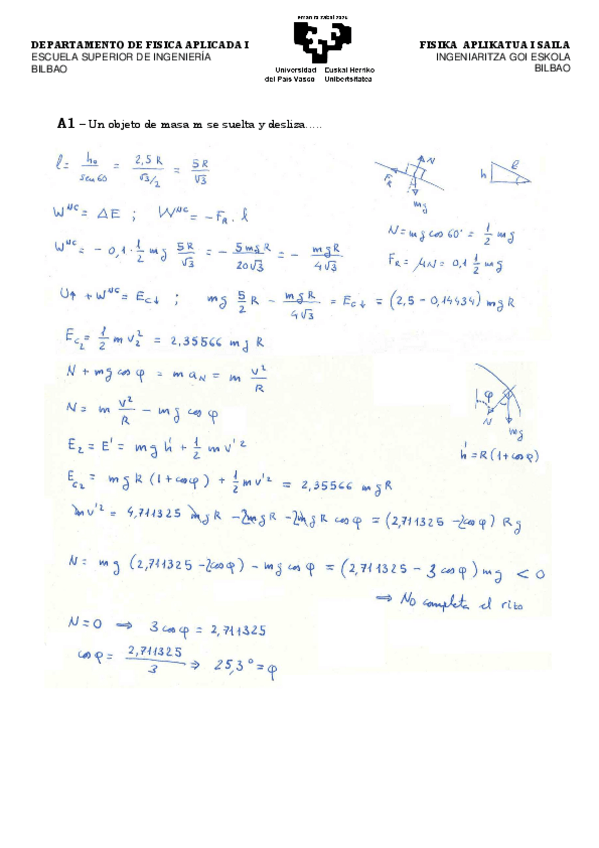 eman ta zabal zazu
DEPARTAMENTO DE FISICA APLICADA I
ESCUELA SUPERIOR DE INGENIERÍA
BILBAO
Universidad del País Vasco
Euskal Herriko Unibertsitatea
FISIKA APLIKATUA I SAILA
INGENIARITZA GOI ESKOLA
BILBAO
A1 – Un objeto de masa m se suelta y desliza.....
l = h₀/sen 60 = 2,5 R/(√3/2) = 5R/√3
N
F_R
mg
h
l
W^NC = ΔE ; W^NC = -F_R · l
N = mg cos 60° = 1/2 mg
W^NC = - 0,1 · 1/2 mg 5R/√3 = - 5mgR/20√3 = - mgR/4√3
F_R = μN = 0,1 1/2 mg
U↑ + W^NC = E_C↓ ; mg 5/2 R - mgR/4√3 = E_C↓ = (2,5 - 0,14434) mgR
E_C₂ = 1/2 m v₂² = 2,35566 mgR
N + mg cos φ = m a_N = m v²/R
N = m v²/R - mg cos φ
φ
N
mg
h' = R(1+cos φ)
E₂ = E' = mg h' + 1/2 m v'²
E_C₂ = mgR (1+cos φ) + 1/2 m v'² = 2,35566 mgR
m v'² = 4,711325 mgR - 2mgR - 2mgR cos φ = (2,711325 - 2cos φ) Rg
N = mg (2,711325 - 2cos φ) - mg cos φ = (2,711325 - 3 cos φ) mg < 0
⇒ No completa el rizo
N = 0 ⇒ 3 cos φ = 2,711325
cos φ = 2,711325/3 ⇒ 25,3° = φ